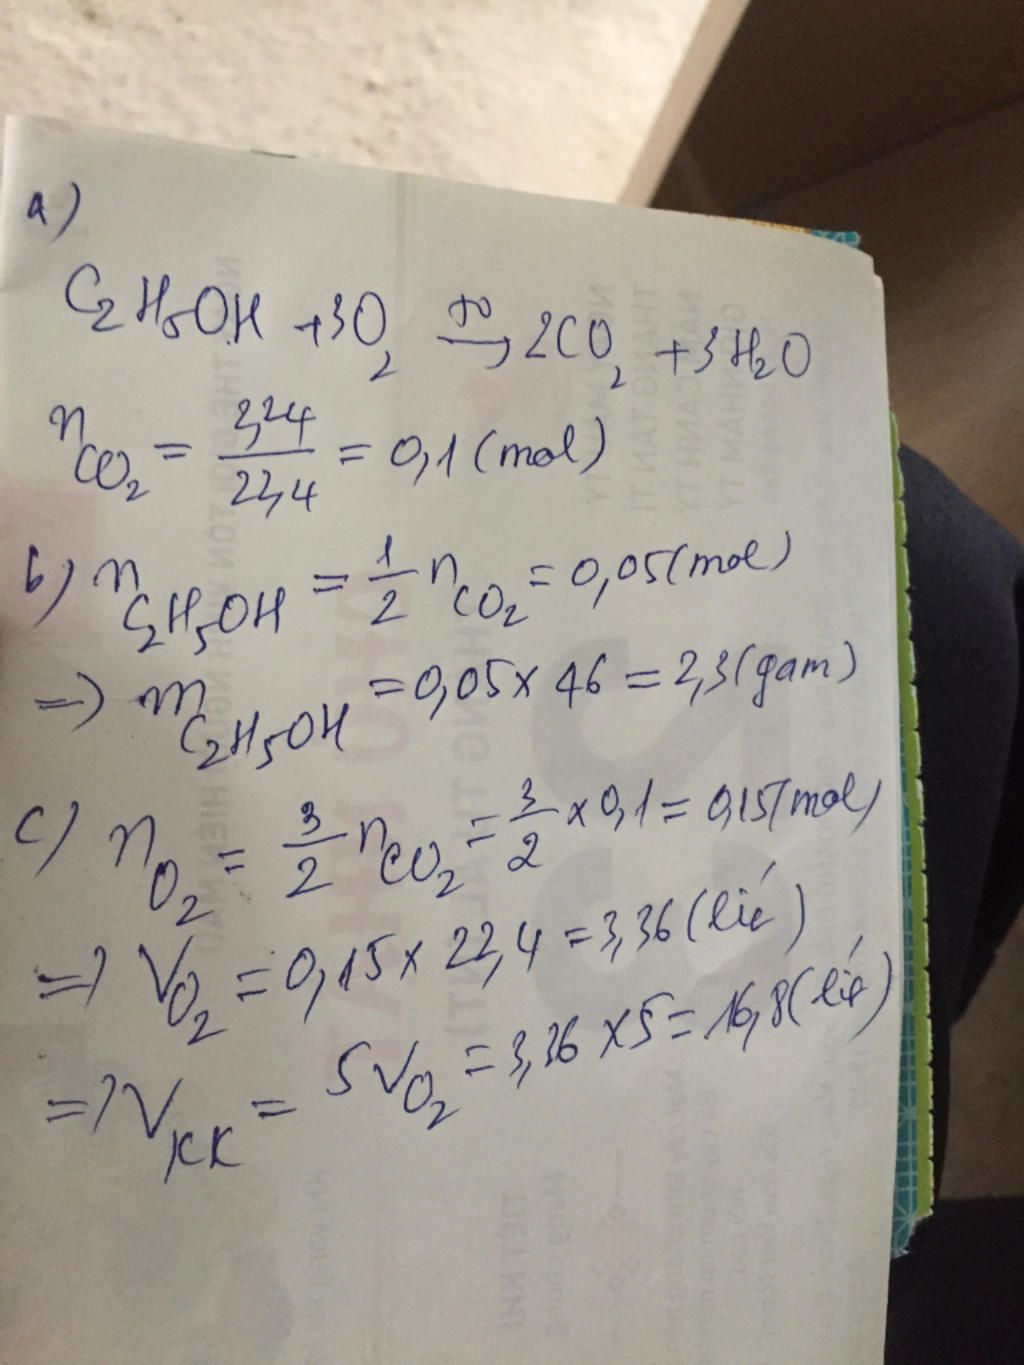 a)
C₂H₅OH + 3O₂ —t⁰→ 2CO₂ + 3H₂O
n CO₂ = 2,24/22,4 = 0,1 (mol)
b) n C₂H₅OH = 1/2 n CO₂ = 0,05 (mol)
=> m C₂H₅OH = 0,05 x 46 = 2,3 (gam)
c) n O₂ = 3/2 n CO₂ = 3/2 x 0,1 = 0,15 (mol)
=> V O₂ = 0,15 x 22,4 = 3,36 (lít)
=> V KK = 5 V O₂ = 3,36 x 5 = 16,8 (lít)